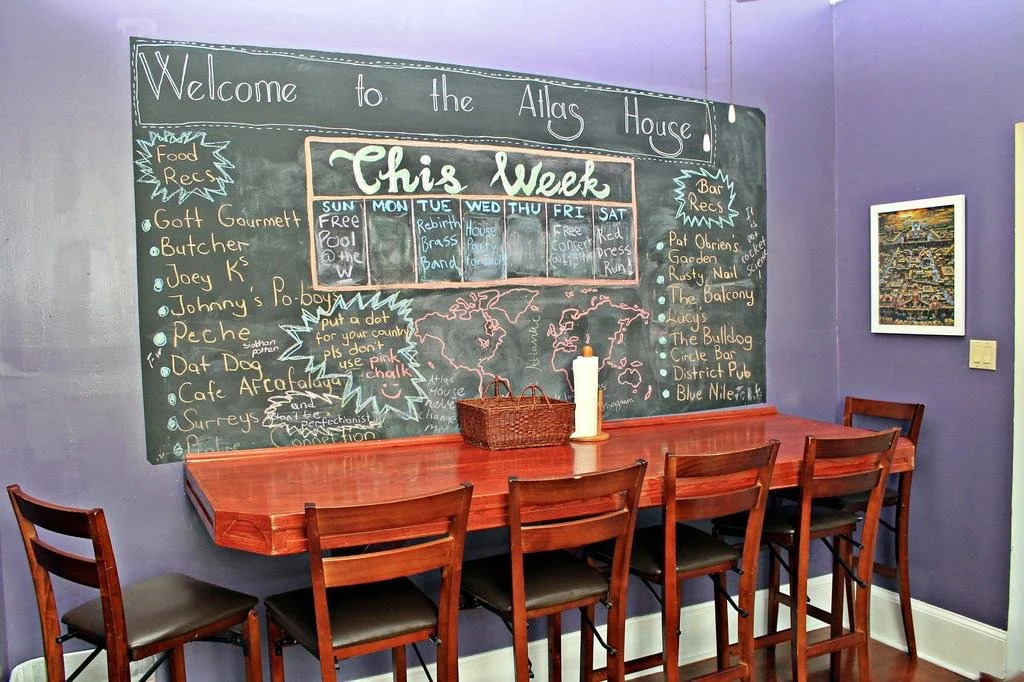 Welcome to the Atlas House
Food
Recs
Gott Gourmett
Butcher
Joey Ks
Johnny's Po-boys
Peche
Dat Dog
Cafe
Surreys
Connection
This Week
SUN MON TUE WED THU FRI SAT
Free
Pool
@ the
W
Rebirth
Brass
Band
House
Party
Free
Concert
Red
Dress
Run!
put a dot
for your country
pls don't
use pink
chalk
and
don't be
perfectionist
Atlas
House
Atlanta
Bar
Recs
It is
not
rocket
science
Pat Obriens
Garden
Rusty Nail
The Balcony
Lucy's
The Bulldog
Circle Bar
District Pub
Blue Nile